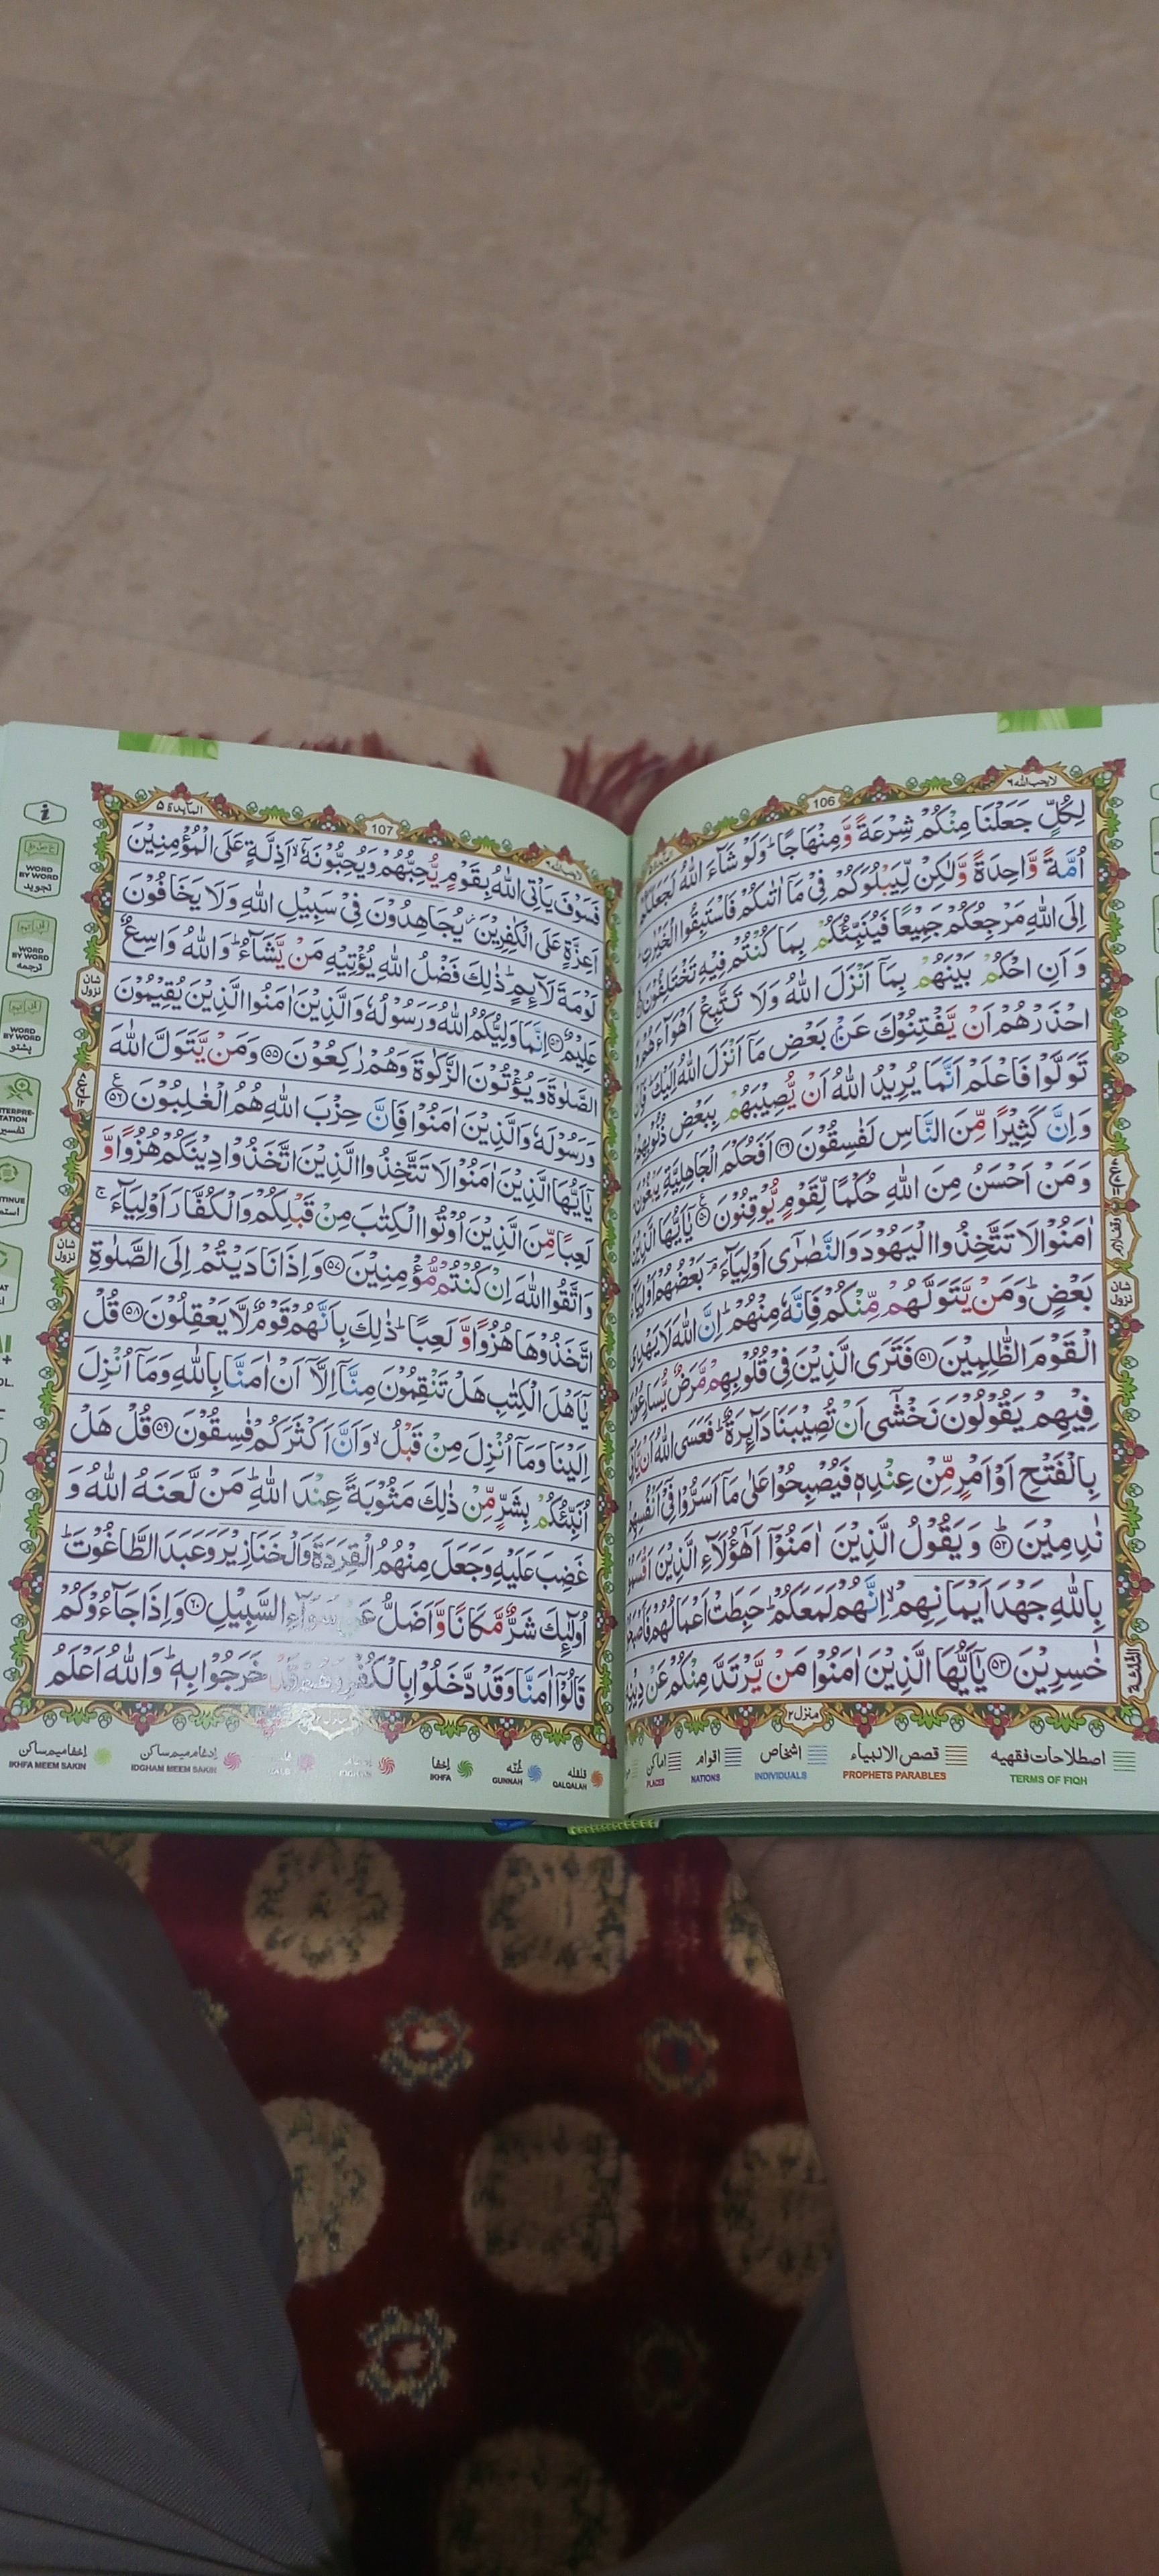 لايحب الله ٦
106
لِكُلٍّ جَعَلْنَا مِنْكُمْ شِرْعَةً وَّمِنْهَاجًا ؕ وَلَوْ شَآءَ اللّٰهُ لَجَعَلَكُمْ
اُمَّةً وَّاحِدَةً وَّلٰكِنْ لِّيَبْلُوَكُمْ فِيْ مَاۤ اٰتٰىكُمْ فَاسْتَبِقُوا الْخَيْرٰتِ ؕ
اِلَى اللّٰهِ مَرْجِعُكُمْ جَمِيْعًا فَيُنَبِّئُكُمْ بِمَا كُنْتُمْ فِيْهِ تَخْتَلِفُوْنَ
وَ اَنِ احْكُمْ بَيْنَهُمْ بِمَاۤ اَنْزَلَ اللّٰهُ وَلَا تَتَّبِعْ اَهْوَآءَهُمْ
احْذَرْهُمْ اَنْ يَّفْتِنُوْكَ عَنْۢ بَعْضِ مَاۤ اَنْزَلَ اللّٰهُ اِلَيْكَ ؕ فَاِنْ
تَوَلَّوْا فَاعْلَمْ اَنَّمَا يُرِيْدُ اللّٰهُ اَنْ يُّصِيْبَهُمْ بِبَعْضِ ذُنُوْبِهِمْ
وَاِنَّ كَثِيْرًا مِّنَ النَّاسِ لَفٰسِقُوْنَ ۝۴۹ اَفَحُكْمَ الْجَاهِلِيَّةِ يَبْغُوْنَ
وَمَنْ اَحْسَنُ مِنَ اللّٰهِ حُكْمًا لِّقَوْمٍ يُّوْقِنُوْنَ ۝۵۰ يٰۤاَيُّهَا الَّذِيْنَ
اٰمَنُوْا لَا تَتَّخِذُوا الْيَهُوْدَ وَالنَّصٰرٰۤى اَوْلِيَآءَ ؔۘ بَعْضُهُمْ اَوْلِيَآءُ
بَعْضٍ ؕ وَمَنْ يَّتَوَلَّهُمْ مِّنْكُمْ فَاِنَّهٗ مِنْهُمْ ؕ اِنَّ اللّٰهَ لَا يَهْدِى
الْقَوْمَ الظّٰلِمِيْنَ ۝۵۱ فَتَرَى الَّذِيْنَ فِيْ قُلُوْبِهِمْ مَّرَضٌ يُّسَارِعُوْنَ
فِيْهِمْ يَقُوْلُوْنَ نَخْشٰۤى اَنْ تُصِيْبَنَا دَآئِرَةٌ ؕ فَعَسَى اللّٰهُ اَنْ يَّاْتِيَ
بِالْفَتْحِ اَوْ اَمْرٍ مِّنْ عِنْدِهٖ فَيُصْبِحُوْا عَلٰى مَاۤ اَسَرُّوْا فِيْۤ اَنْفُسِهِمْ
نٰدِمِيْنَ ۝۵۲ؕ وَ يَقُوْلُ الَّذِيْنَ اٰمَنُوْۤا اَهٰۤؤُلَآءِ الَّذِيْنَ اَقْسَمُوْا
بِاللّٰهِ جَهْدَ اَيْمَانِهِمْ ۙ اِنَّهُمْ لَمَعَكُمْ ؕ حَبِطَتْ اَعْمَالُهُمْ فَاَصْبَحُوْا
خٰسِرِيْنَ ۝۵۳ يٰۤاَيُّهَا الَّذِيْنَ اٰمَنُوْا مَنْ يَّرْتَدَّ مِنْكُمْ عَنْ دِيْنِهٖ
شان نزول
الثلثة
منزل ٢
اصطلاحات فقهيه
TERMS OF FIQH
قصص الانبياء
PROPHETS PARABLES
اشخاص
INDIVIDUALS
اقوام
NATIONS
اماكن
PLACES
107
المآئدة ٥
فَسَوْفَ يَاْتِى اللّٰهُ بِقَوْمٍ يُّحِبُّهُمْ وَيُحِبُّوْنَهٗۤ ۙ اَذِلَّةٍ عَلَى الْمُؤْمِنِيْنَ
اَعِزَّةٍ عَلَى الْكٰفِرِيْنَ ؗ يُجَاهِدُوْنَ فِيْ سَبِيْلِ اللّٰهِ وَلَا يَخَافُوْنَ
لَوْمَةَ لَآئِمٍ ؕ ذٰلِكَ فَضْلُ اللّٰهِ يُؤْتِيْهِ مَنْ يَّشَآءُ ؕ وَاللّٰهُ وَاسِعٌ
عَلِيْمٌ ۝۵۴ اِنَّمَا وَلِيُّكُمُ اللّٰهُ وَرَسُوْلُهٗ وَالَّذِيْنَ اٰمَنُوا الَّذِيْنَ يُقِيْمُوْنَ
الصَّلٰوةَ وَيُؤْتُوْنَ الزَّكٰوةَ وَهُمْ رٰكِعُوْنَ ۝۵۵ وَمَنْ يَّتَوَلَّ اللّٰهَ
وَرَسُوْلَهٗ وَالَّذِيْنَ اٰمَنُوْا فَاِنَّ حِزْبَ اللّٰهِ هُمُ الْغٰلِبُوْنَ ۝۵۶
يٰۤاَيُّهَا الَّذِيْنَ اٰمَنُوْا لَا تَتَّخِذُوا الَّذِيْنَ اتَّخَذُوْا دِيْنَكُمْ هُزُوًا وَّ
لَعِبًا مِّنَ الَّذِيْنَ اُوْتُوا الْكِتٰبَ مِنْ قَبْلِكُمْ وَالْكُفَّارَ اَوْلِيَآءَ ۚ
وَاتَّقُوا اللّٰهَ اِنْ كُنْتُمْ مُّؤْمِنِيْنَ ۝۵۷ وَاِذَا نَادَيْتُمْ اِلَى الصَّلٰوةِ
اتَّخَذُوْهَا هُزُوًا وَّ لَعِبًا ؕ ذٰلِكَ بِاَنَّهُمْ قَوْمٌ لَّا يَعْقِلُوْنَ ۝۵۸ قُلْ
يٰۤاَهْلَ الْكِتٰبِ هَلْ تَنْقِمُوْنَ مِنَّاۤ اِلَّاۤ اَنْ اٰمَنَّا بِاللّٰهِ وَمَاۤ اُنْزِلَ
اِلَيْنَا وَمَاۤ اُنْزِلَ مِنْ قَبْلُ ۙ وَاَنَّ اَكْثَرَكُمْ فٰسِقُوْنَ ۝۵۹ قُلْ هَلْ
اُنَبِّئُكُمْ بِشَرٍّ مِّنْ ذٰلِكَ مَثُوْبَةً عِنْدَ اللّٰهِ ؕ مَنْ لَّعَنَهُ اللّٰهُ وَ
غَضِبَ عَلَيْهِ وَجَعَلَ مِنْهُمُ الْقِرَدَةَ وَالْخَنَازِيْرَ وَعَبَدَ الطَّاغُوْتَ ؕ
اُولٰٓئِكَ شَرٌّ مَّكَانًا وَّاَضَلُّ عَنْ سَوَآءِ السَّبِيْلِ ۝۶۰ وَاِذَا جَآءُوْكُمْ
قَالُوْۤا اٰمَنَّا وَقَدْ دَّخَلُوْا بِالْكُفْرِ وَهُمْ قَدْ خَرَجُوْا بِهٖ ؕ وَاللّٰهُ اَعْلَمُ
شان نزول
شان نزول
WORD BY WORD
تجويد
WORD BY WORD
ترجمه
WORD BY WORD
پشتو
INTERPRE-
TATION
تفسير
قلقله
QALQALAH
غُنّه
GUNNAH
إخفا
IKHFA
إدغام ميم ساكن
IDGHAM MEEM SAKIN
إخفا ميم ساكن
IKHFA MEEM SAKIN